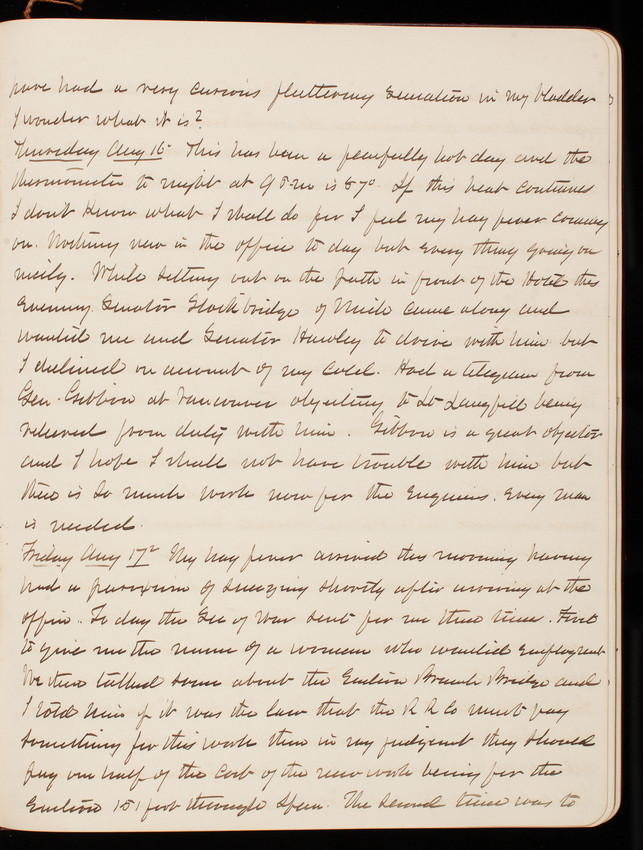 have had a very curious fluttering sensation in my bladder
I wonder what it is?
Thursday Aug 16 This has been a fearfully hot day and the
thermometer to night at 9 P.m is 87° If this heat continues
I dont know what I shall do for I feel my hay fever coming
on. Nothing new in the office to day but every thing going on
nicely. While sitting out on the path in front of the Hotel this
evening. Senator Stockbridge of Mich came along and
wanted me and Senator Hawley to drive with him but
I declined on account of my cold. Had a telegram from
Gen. Gibbon at Vancouver objecting to Lt Langfitt being
relieved from duty with him. Gibbon is a great objector
and I hope I shall not have trouble with him but
there is so much work now for the Engineers. Every man
is needed.
Friday Aug 17 My hay fever arrived this morning having
had a paroxism of sneezing shortly after arriving at the
office. To day the Sec of War sent for me three times. First
to give me the name of a woman who wanted employment
We then talked some about the Eastern Branch Bridge and
I told him if it was the law that the R R Co must pay
something for this work then in my judgment they should
pay one half of the cost of the new work being for the
151 foot through span. The second time was to